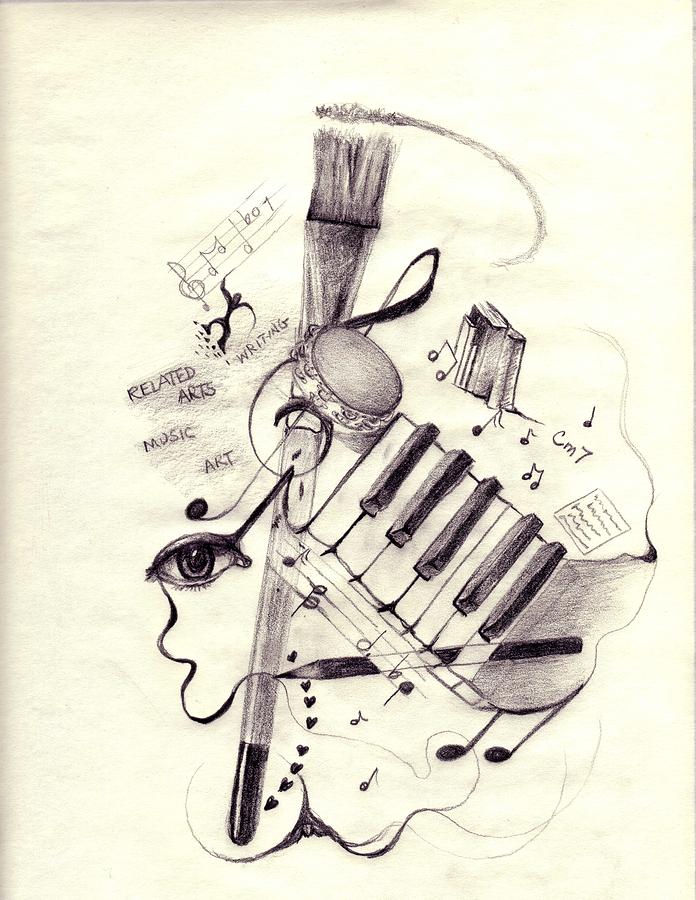 WRITING
RELATED
ARTS
MUSIC
ART
Cm7